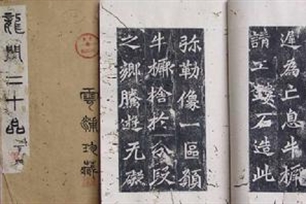 遲為亡息牛橛
請工鏤石造此
弥勒像一區願
牛橛捨於分段
之鄉騰遊无礙
龍門二十品